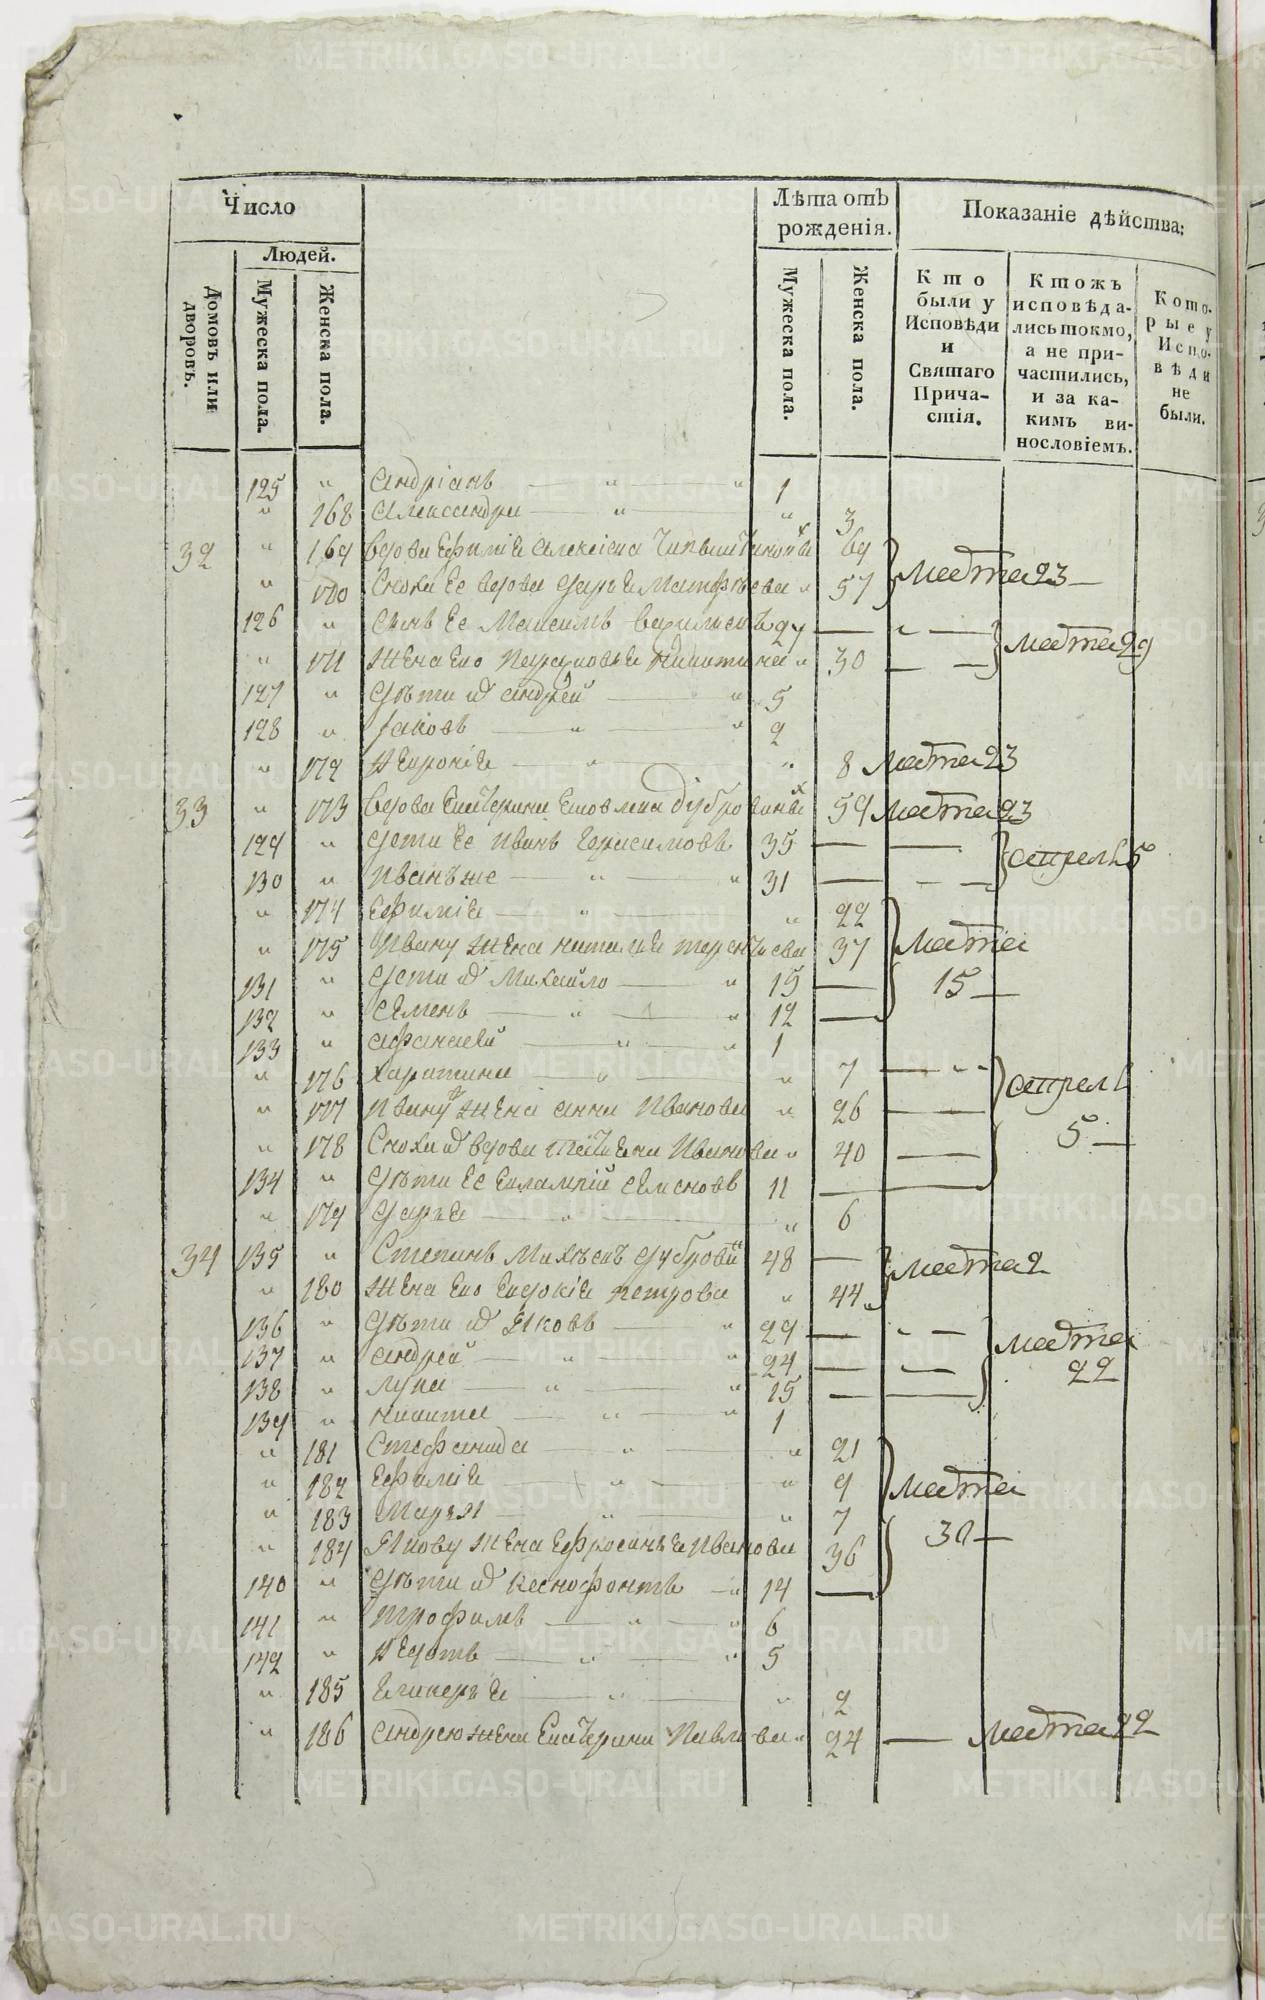 Число
Лѣта отъ рожденія.
Показаніе дѣйства:
Людей.
Домовъ или дворовъ.
Мужеска пола.
Женска пола.
Мужеска пола.
Женска пола.
Кто были у Исповѣди и Святаго Причастія.
Ктожъ исповѣдались токмо, а не причастились, и за каким винословіемъ.
Которые у Исповѣди не были.
125 " Андріанъ " " 1
" 168 Александра " " 3
32 " 169 вдова Ефимія Алексіева 69
" 170 Сноха Ее вдова Дарья Матфѣева " 57 марта 23
126 " Сынъ Ее Максимъ 27 "
" 171 Жена Его Никитина " 30 марта 29
127 " Дѣти их Андрей " 5
128 " Іаковъ " " 2
" 172 Февронія " " 8 марта 23
33 " 173 вдова Екатерина Дубровина 59 марта 23
129 " Дети Ее Иванъ Герасимовъ 35
130 " Иванъ же " " 31 апреля 5
" 174 Ефимія " " 22
" 175 Ивану жена Наталия Терентьева 37 марта
131 " Дети их Михайло " 15 15
132 " Семенъ " " 12
133 " Афанасей " " 1
" 176 Харитина " " 7
" 177 Ивану жена Анна Иванова " 26 апреля
" 178 Сноха их вдова Татьяна Иванова " 40 5
134 " Дѣти Ее Евлампій Семеновъ 11
" 179 Дарья " " 6
34 135 " Степанъ Михѣевъ Дубровин 48 марта 2
" 180 Жена Его Евдокія Петрова " 44
136 " Дѣти их Яковъ " 29
137 " Андрей " " 24 марта
138 " Лука " " 15 22
139 " Никита " " 1
" 181 Стефанида " " 21
" 182 Ефимія " " 9 марта
" 183 Марья " " 7
" 184 Якову жена Ефросинья Иванова 36 30
140 " Дѣти их Ксенофонтъ " 14
141 " Трофимъ " " 6
142 " Федотъ " " 5
" 185 Гликерья " " 2
" 186 Андрею жена Екатерина Павлова " 24 марта 22
METRIKI.GASO-URAL.RU